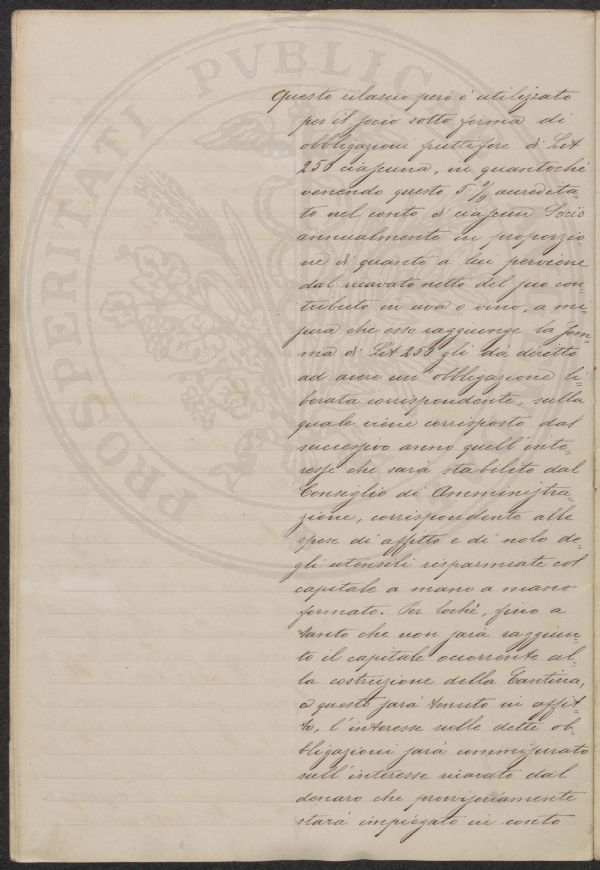 PROSPERITATI PVBLIC
Questo rilascio però è utilizzato
per il socio sotto forma di
obbligazioni fruttifere di Lit
250 ciascuna, in quantochè
venendo questo 5 % accredita=
to nel conto di ciascun Socio
annualmente in proporzio=
ne di quanto a lui perviene
dal ricavato netto del suo con=
tributo in uva o vino, a mi=
sura che esso raggiunge la som=
ma di Lit 250 gli dà diritto
ad avere un obbligazione li=
berata corrispondente, sulla
quale viene corrisposto dal
successivo anno quell'inte=
resse che sarà stabilito dal
Consiglio di Amministra=
zione, corrispondente alle
spese di affitto e di nolo de=
gli utensili risparmiate col
capitale a mano a mano
formato. Per lochè, fino a
tanto che non sarà raggiun=
to il capitale occorrente al=
la costruzione della Cantina,
e questo sarà tenuto in affit=
to, l'interesse sulle dette ob=
bligazioni sarà commisurato
sull'interesse ricavato dal
denaro che provvisoriamente
starà impiegato in conto